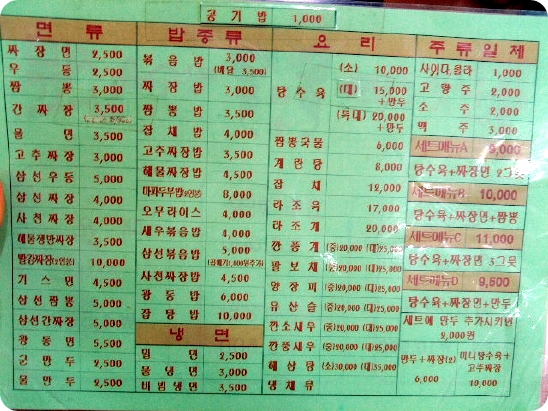 공기밥 1,000
면류
짜장면 2,500
우동 2,500
짬뽕 3,000
간짜장 3,500
울면 3,500
고추짜장 3,000
삼선우동 5,000
삼선짜장 4,000
사천짜장 4,000
해물쟁반짜장 3,500
10,000
기스면 4,500
삼선짬뽕 5,000
삼선간짜장 5,000
광동면 5,500
군만두 2,500
물만두 2,500
밥종류
볶음밥 3,000
(배달 3,500)
짜장밥 3,000
짬뽕밥 3,500
잡채밥 4,000
고추짜장밥 3,500
해물짜장밥 4,500
마파두부밥 8,000
오무라이스 4,000
새우볶음밥 4,000
삼선볶음밥 5,000
사천짜장밥 4,500
광동밥 6,000
잡탕밥 10,000
냉면
밀면 2,500
물냉면 3,000
비빔냉면 3,500
요리
탕수육 (소) 10,000
(대) 15,000
+만두
(특대) 20,000
+만두
짬뽕국물 6,000
계란탕 8,000
잡채 12,000
라조육 17,000
라조개 20,000
깐풍기 (중)20,000 (대)25,000
팔보채 (중)20,000 (대)25,000
양장피 (중)20,000 (대)25,000
유산슬 (중)20,000 (대)25,000
깐소새우 (중)20,000 (대)25,000
깐풍새우 (중)20,000 (대)25,000
해삼탕 (소)30,000 (대)35,000
냉채류
주류일체
사이다,콜라 1,000
고량주 2,000
소주 2,000
맥주 3,000
세트메뉴A 9,000
탕수육+짜장면 2그릇
세트메뉴B 10,000
탕수육+짜장면+짬뽕
세트메뉴C 11,000
탕수육+짜장면 3그릇
세트메뉴D 9,500
탕수육+짜장면+만두
세트에 만두 추가시키면
2,000원
만두+짜장(2)
6,000
미니탕수육+
고추짜장
10,000